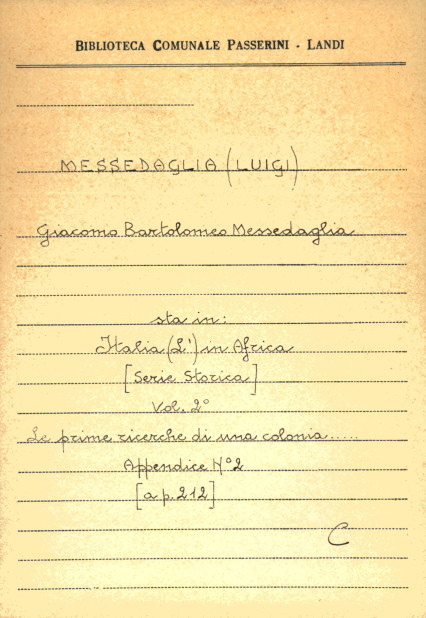 BIBLIOTECA COMUNALE PASSERINI - LANDI
MESSEDAGLIA (LUIGI)
Giacomo Bartolomeo Messedaglia
sta in:
Italia (L') in Africa
[Serie Storica]
Vol. 2°
Le prime ricerche di una colonia.....
Appendice N°2
[a p. 212]
C